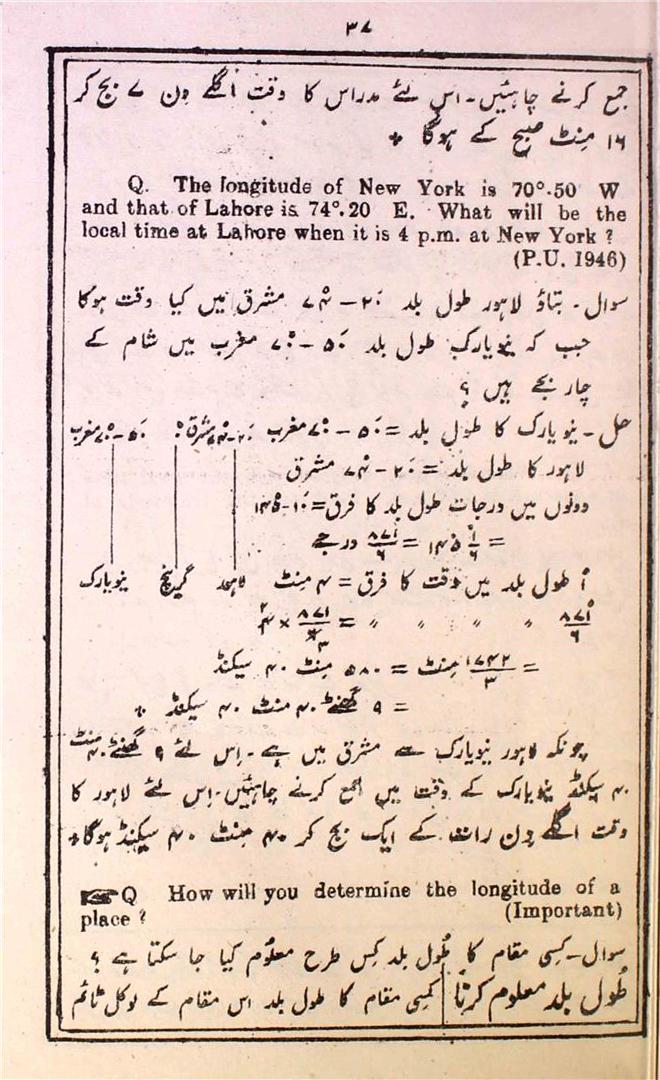 ۳۷
جمع کرنے چاہئیں۔ اس لئے مدراس کا وقت اگلے دن ۷ بج کر
۱۶ منٹ صبح کے ہوگا *
Q. The longitude of New York is 70°.50 W
and that of Lahore is 74°.20 E. What will be the
local time at Lahore when it is 4 p.m. at New York ?
(P.U. 1946)
سوال۔ بتاؤ لاہور طول بلد ۲۰َ - ۷۴° مشرق میں کیا وقت ہوگا
جب کہ نیویارک طول بلد ۵۰َ - ۷۰° مغرب میں شام کے
چار بجے ہیں ؟
حل۔ نیویارک کا طول بلد = ۵۰َ - ۷۰° مغرب ۲۰َ-۷۴° مشرق ۰° ۵۰َ-۷۰° مغرب
لاہور کا طول بلد = ۲۰َ - ۷۴° مشرق
دونوں میں درجات طول بلد کا فرق = ۱۰َ-۱۴۵°
= ۱۴۵ ۱/۶ = ۸۷۱/۶ درجے
۱° طول بلد میں وقت کا فرق = ۴ منٹ لاہور گرینچ نیویارک
۸۷۱/۶ " " " " = ۸۷۱/۶ × ۴
= ۱۷۴۲/۳ منٹ = ۵۸۰ منٹ ۴۰ سیکنڈ
= ۹ گھنٹے ۴۰ منٹ ۴۰ سیکنڈ *
چونکہ لاہور نیویارک سے مشرق میں ہے۔ اِس لئے ۹ گھنٹے ۴۰ منٹ
۴۰ سیکنڈ نیویارک کے وقت میں جمع کرنے چاہئیں۔ اِس لئے لاہور کا
وقت اگلے دن رات کے ایک بج کر ۴۰ منٹ ۴۰ سیکنڈ ہوگا *
☞ Q How will you determine the longitude of a
place ? (Important)
سوال۔ کسی مقام کا طُول بلد کِس طرح معلُوم کیا جا سکتا ہے ؟
طُول بلد معلوم کرنا کسی مقام کا طول بلد اس مقام کے لوکل ٹائم